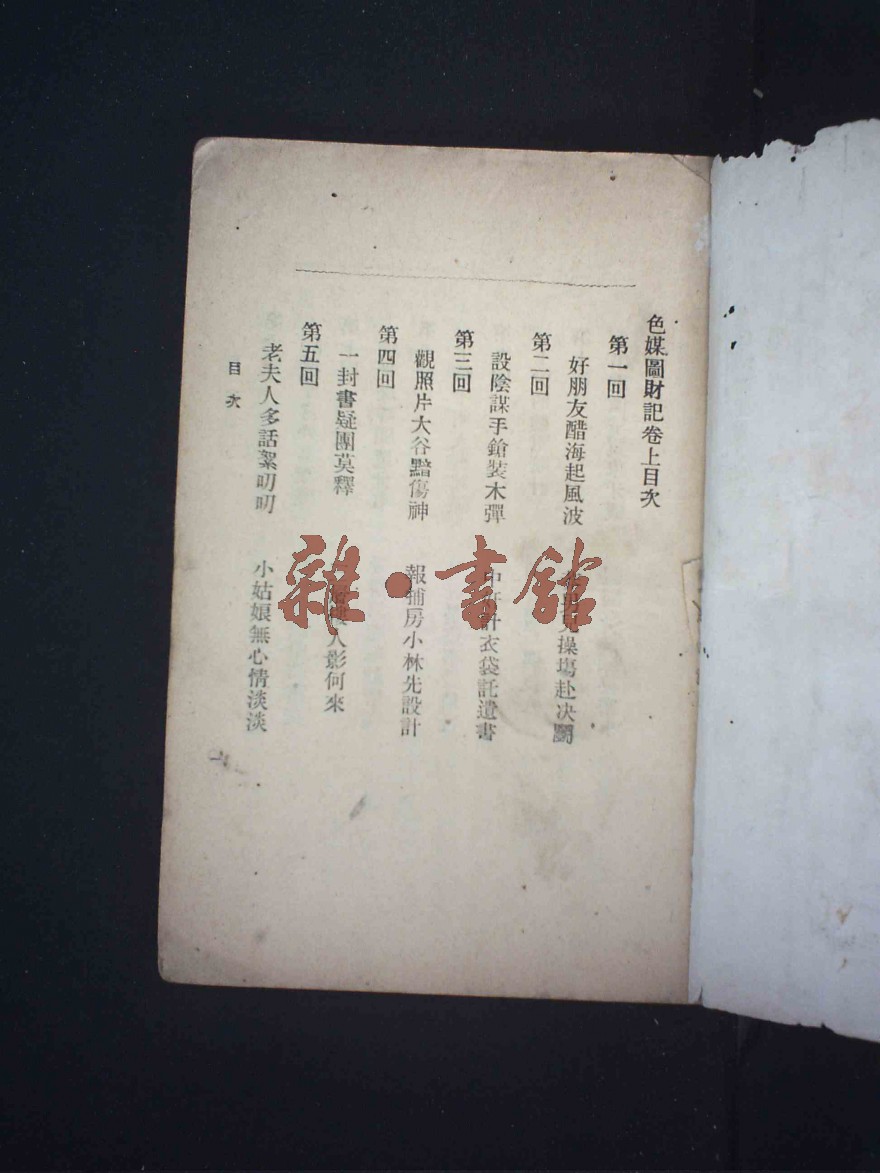 色媒圖財記卷上目次
第一回
好朋友醋海起風波 男兒操塲赴决鬭
第二回
設陰謀手鎗裝木彈 中奸計衣袋託遺書
第三回
觀照片大谷黯傷神 報舘房小林先設計
第四回
一封書疑團莫釋 人影何來
第五回
老夫人多話絮叨叨 小姑娘無心情淡淡
目次
雜·書舘